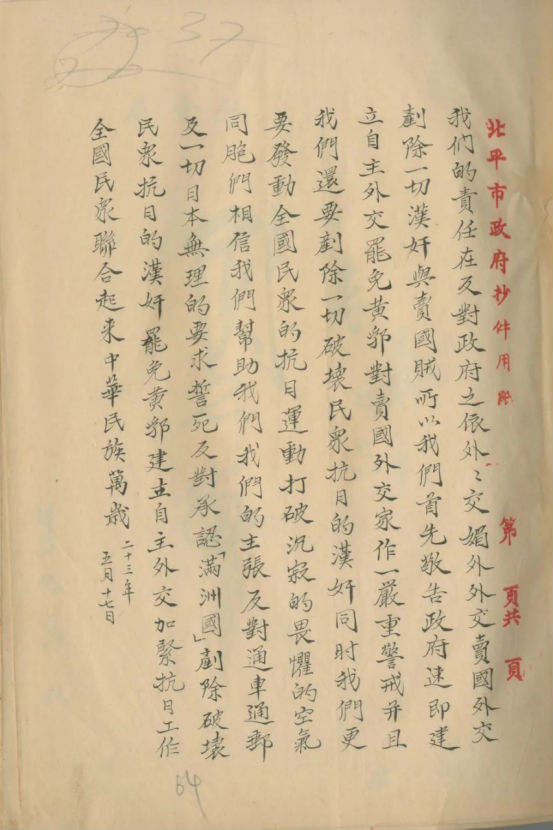 37
北平市政府抄件用紙
第 頁共 頁
我们的責任在反對政府之依外〻交媚外外交賣國外交
剷除一切漢奸與賣國賊所以我們首先敬告政府速即建
立自主外交罷免黄郛對賣國外交家作一嚴重警戒并且
我們還要剷除一切破壞民衆抗日的漢奸同时我們更
要發動全國民衆的抗日運動打破沉寂的畏懼的空氣
同胞們相信我們幫助我們我們的主張反對通車通郵
反一切日本無理的要求誓死反對承認「滿洲國」剷除破壞
民衆抗日的漢奸罷免黄郛建立自主外交加緊抗日工作
全國民衆聯合起来中華民族萬歲
二十三年
五月十七日
64